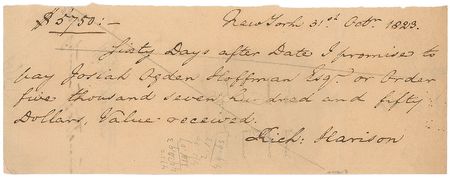 $5750:- New York 31st Octr. 1823.
Sixty Days after Date I promise to
pay Josiah Ogden Hoffman Esqr. or Order
five thousand seven hundred and fifty
Dollars, Value received.
Rich: Harison